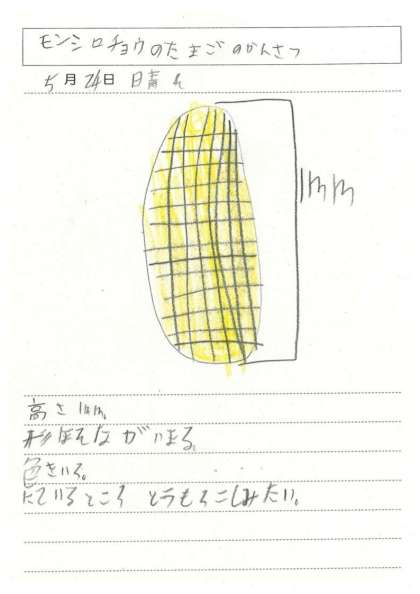 モンシロチョウのたまごのかんさつ
5月24日 晴れ
1mm
高さ1mm。
形ほそながいまる。
色きいろ。
にているところ とうもろこしみたい。